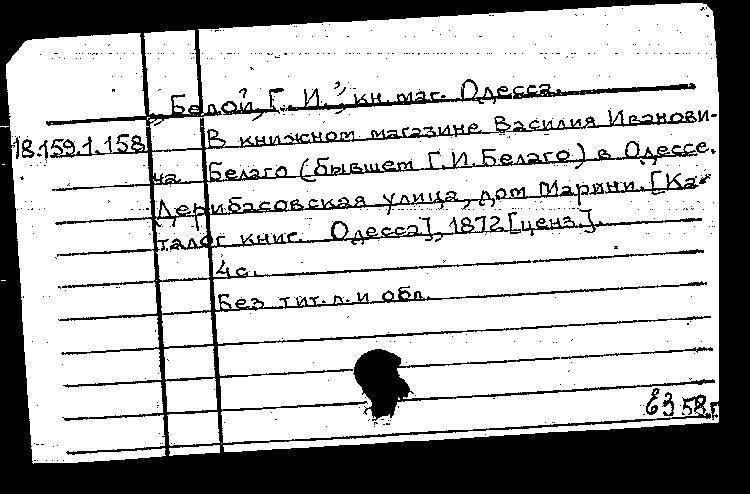 „Белой, Г. И.“, кн. маг. Одесса.
18.159.1.158
В книжном магазине Василия Иванови-
ча Белаго (бывшем Г. И. Белаго) в Одессе.
Дерибасовская улица, дом Марини. [Ка-
талог книг. Одесса], 1872 [ценз.].
4 с.
Без тит. л. и обл.